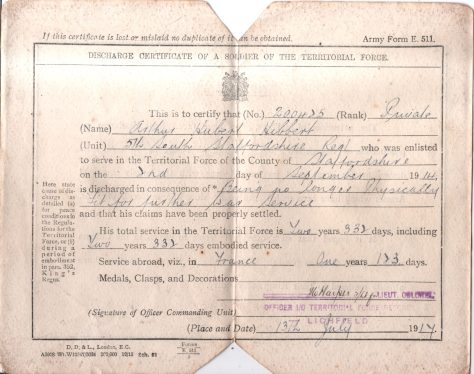 If this certificate is lost or mislaid no duplicate of it can be obtained.
Army Form E. 511.
DISCHARGE CERTIFICATE OF A SOLDIER OF THE TERRITORIAL FORCE.
This is to certify that (No.) 200425 (Rank) Private
(Name) Arthur Hubert Hibbert
(Unit) 5th South Staffordshire Regt who was enlisted
to serve in the Territorial Force of the County of Staffordshire
on the 2nd day of September 1914,
is discharged in consequence of * Being no longer Physically
fit for further War Service
and that his claims have been properly settled.
* Here state
cause of dis-
charge as
detailed (a)
for peace
conditions in
the Regula-
tions for the
Territorial
Force, or (b)
during a
period of
embodiment
in para. 392,
King's
Regns.
His total service in the Territorial Force is Two years 332 days, including
Two years 332 days embodied service.
Service abroad, viz., in France One years 123 days.
Medals, Clasps, and Decorations
LIEUT. COLONEL,
(Signature of Officer Commanding Unit) OFFICER I/C TERRITORIAL FORCE
LICHFIELD
(Place and Date) 13th July 1917
D. D. & L., London, E.C.
Forms
E. 511